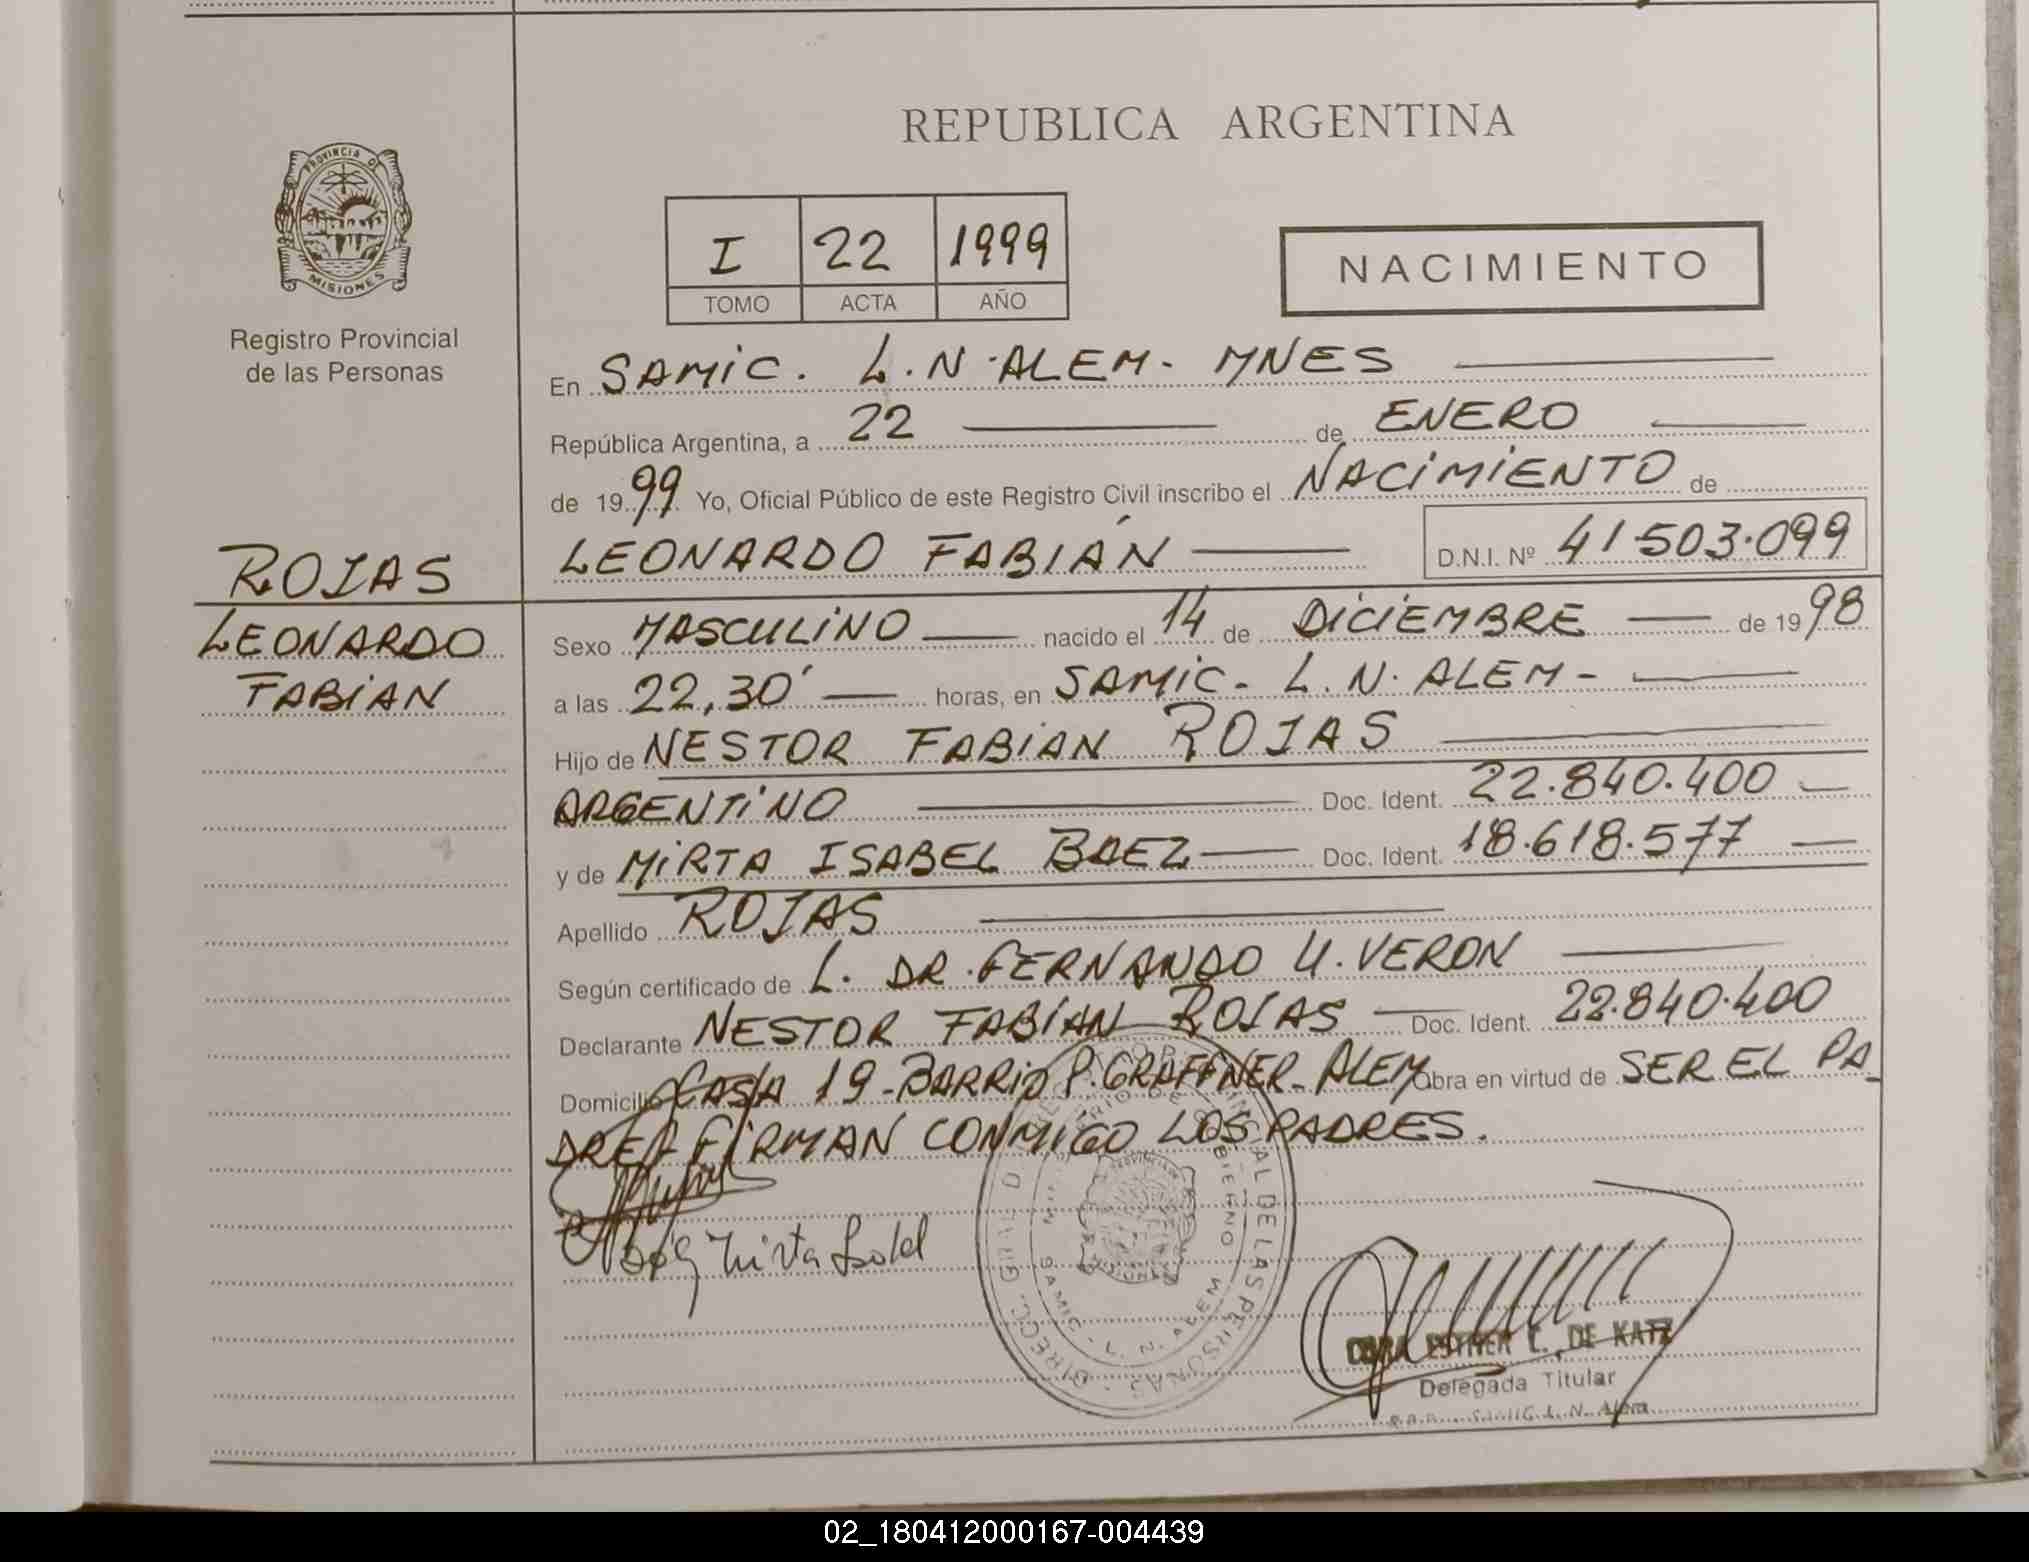 REPUBLICA ARGENTINA
PROVINCIA DE
MISIONES
Registro Provincial
de las Personas
I 22 1999
TOMO ACTA AÑO
NACIMIENTO
En SAMIC. L.N.ALEM- MNES
República Argentina, a 22 de ENERO
de 1999 Yo, Oficial Público de este Registro Civil inscribo el NACIMIENTO de
ROJAS
LEONARDO
FABIAN
LEONARDO FABIÁN D.N.I. Nº 41503.099
Sexo MASCULINO nacido el 14 de DICIEMBRE de 1998
a las 22,30' horas, en SAMIC- L.N. ALEM-
Hijo de NESTOR FABIAN ROJAS
ARGENTINO Doc. Ident. 22.840.400
y de MIRTA ISABEL BAEZ Doc. Ident. 18.618.577
Apellido ROJAS
Según certificado de L. DR. FERNANDO U. VERON
Declarante NESTOR FABIAN ROJAS Doc. Ident. 22.840.400
Domicilio CASA 19-BARRIO P. GRAFFNER- ALEM Obra en virtud de SER EL PA_
DRE FIRMAN CONMIGO LOS PADRES.
Mirta
SAMIC - L. N. ALEM
ESTHER C. DE KATZ
Delegada Titular
02_180412000167-004439